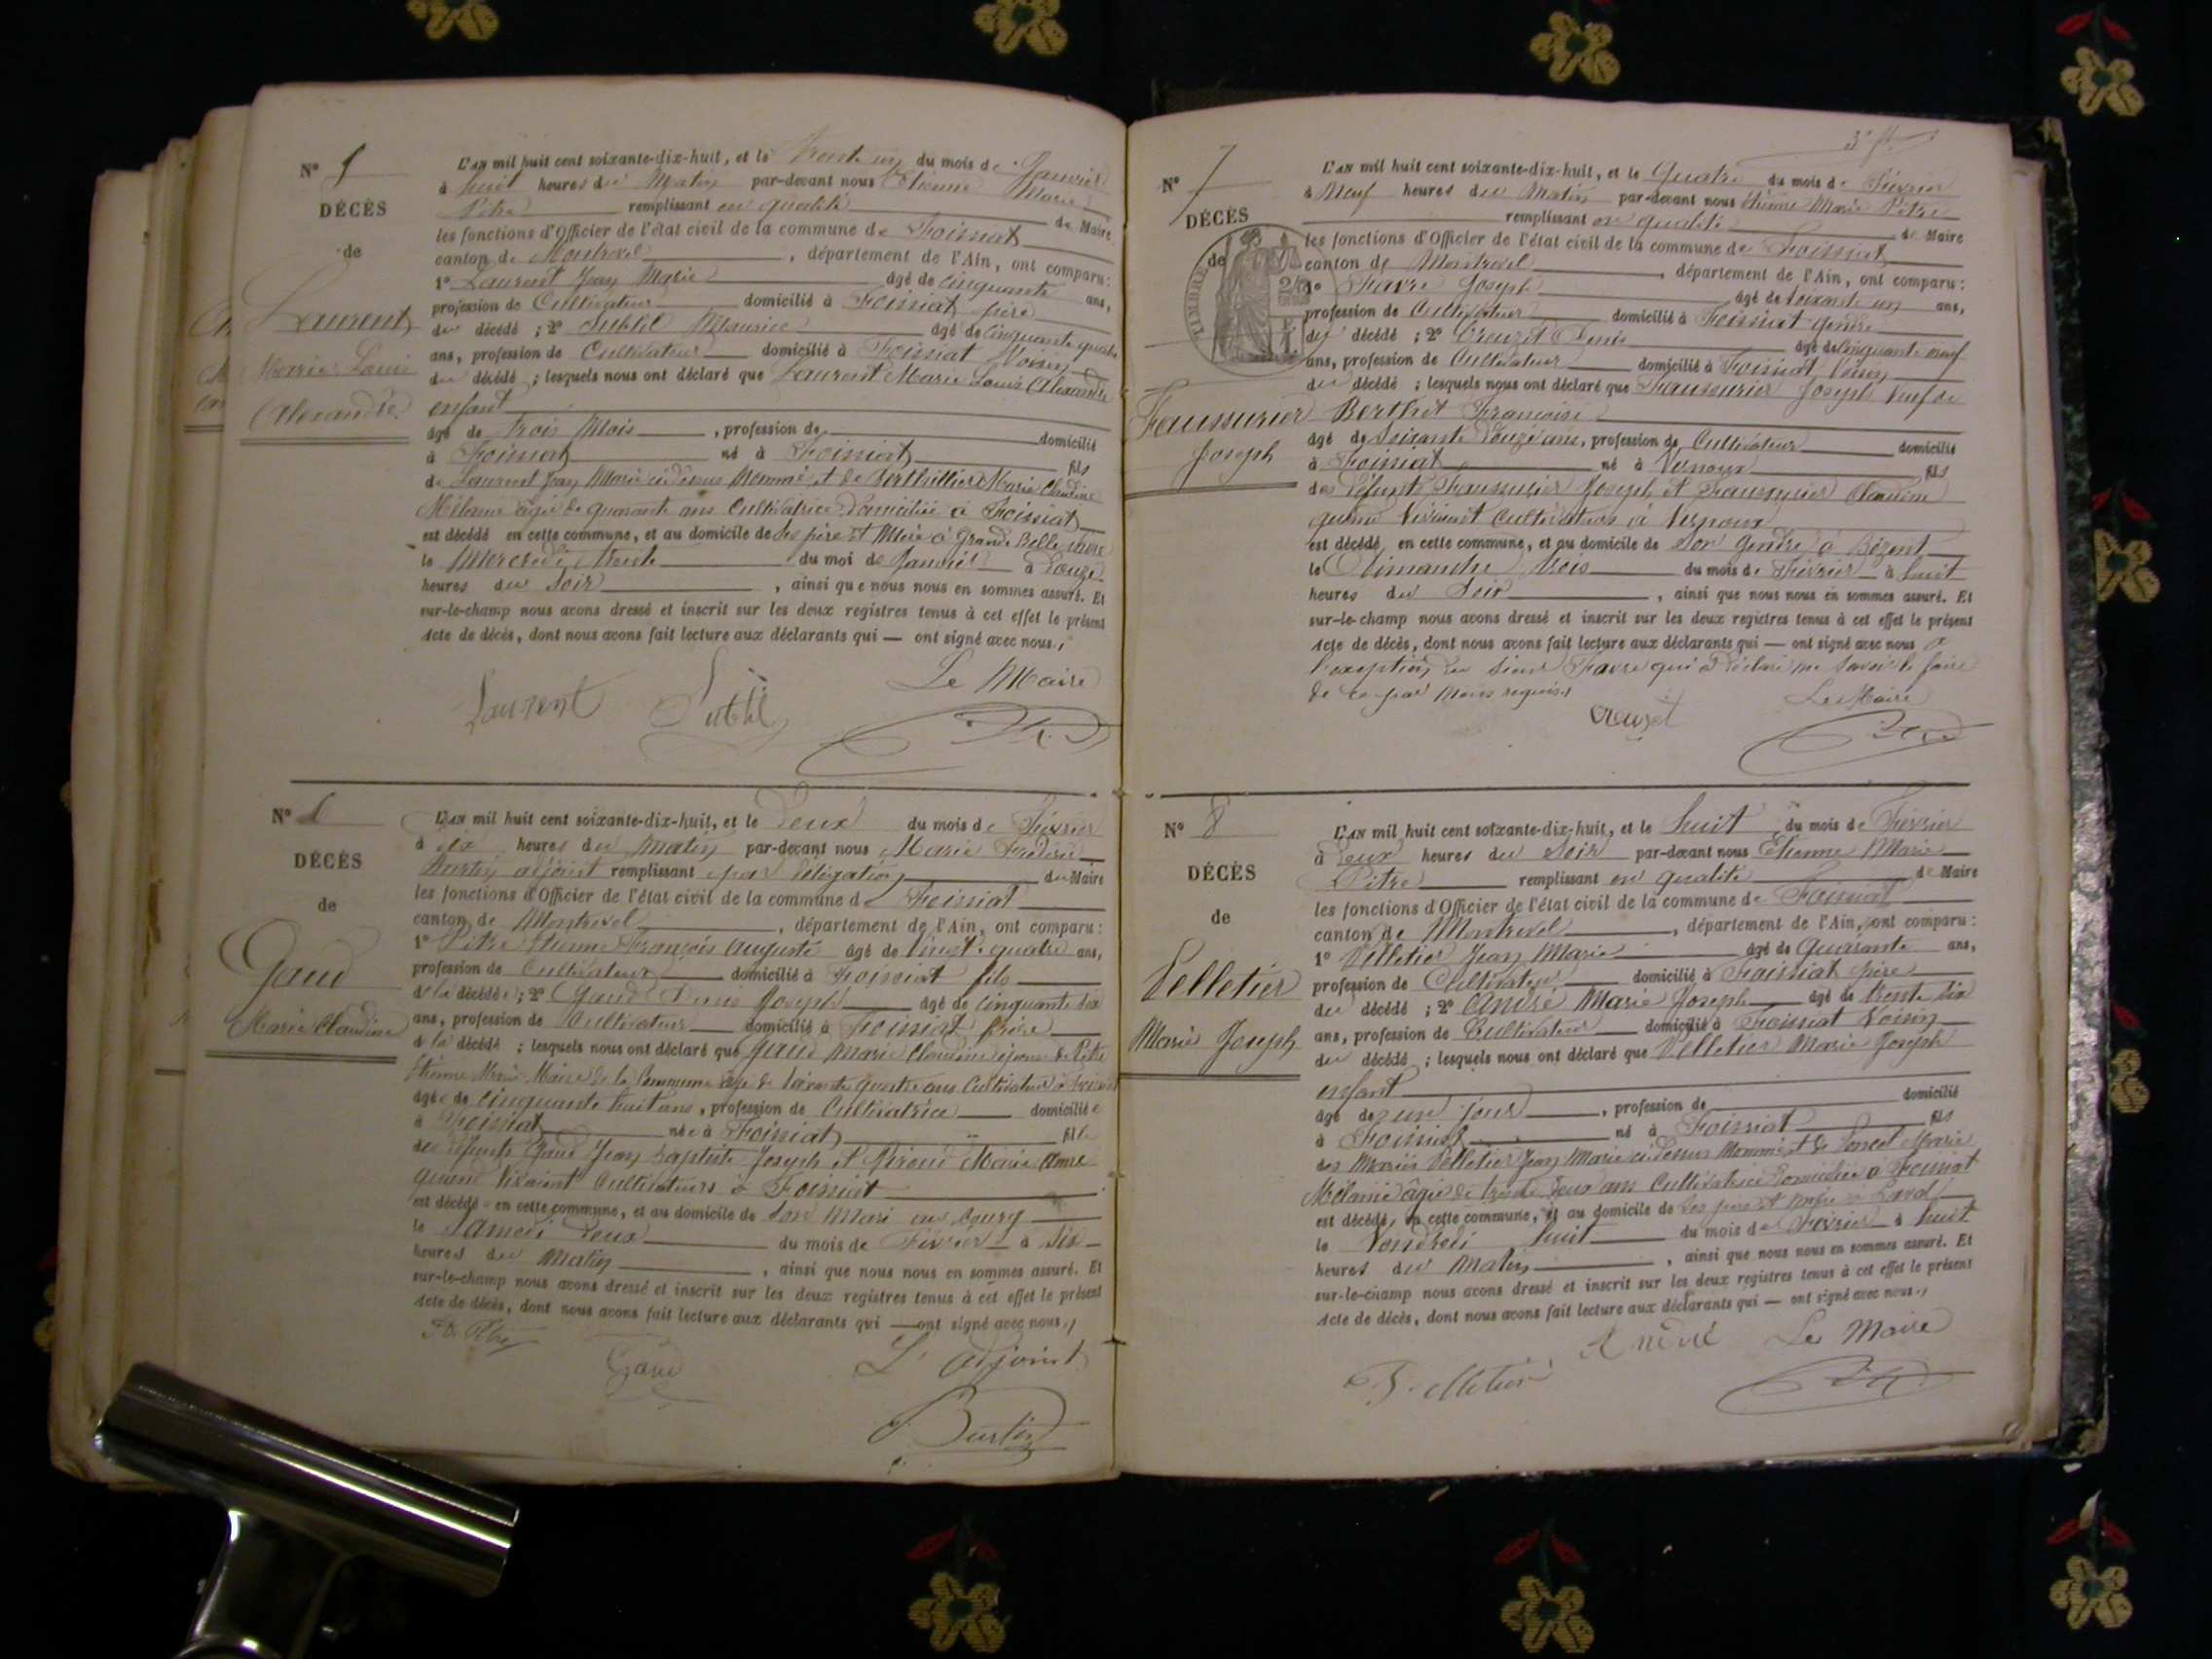 N° 5
DÉCÈS
de
Laurent
Marie Louis
Alexandre
L'AN mil huit cent soixante-dix-huit, et le Trente un du mois de Janvier
à huit heures du Matin par-devant nous Etienne Marie
Pitre remplissant en qualité de Maire
les fonctions d'Officier de l'état civil de la commune de Foissiat
canton de Montrevel, département de l'Ain, ont comparu:
1° Laurent Jean Marie âgé de Cinquante ans,
profession de Cultivateur domicilié à Foissiat père
du décédé ; 2° Subtil Maurice âgé de Cinquante quatre
ans, profession de Cultivateur domicilié à Foissiat Voisin
du décédé ; lesquels nous ont déclaré que Laurent Marie Louis Alexandre
enfant
âgé de trois Mois, profession de domicilié
à Foissiat né à Foissiat fils
de Laurent Jean Marie ci dessus Nommé et de Berthillier Marie Claudine
Mélanie âgée de quarante ans Cultivatrice domiciliée à Foissiat
est décédé en cette commune, et au domicile de Ses père et Mère à Grande Belle
le Mercredi trente du moi de Janvier à Douze
heures du Soir, ainsi que nous nous en sommes assuré. Et
sur-le-champ nous avons dressé et inscrit sur les deux registres tenus à cet effet le présent
Acte de décès, dont nous avons fait lecture aux déclarants qui — ont signé avec nous.
Laurent Subtil Le Maire
N° 6
DÉCÈS
de
Gaud
Marie Claudine
L'AN mil huit cent soixante-dix-huit, et le Deux du mois de Février
à dix heures du Matin par-devant nous Marie Frédéric
Burtin adjoint remplissant par délégation du Maire
les fonctions d'Officier de l'état civil de la commune de Foissiat
canton de Montrevel, département de l'Ain, ont comparu:
1° Pitre Etienne François Auguste âgé de Vingt-quatre ans,
profession de Cultivateur domicilié à Foissiat fils
de la décédée ; 2° Gaud Denis Joseph âgé de Cinquante six
ans, profession de Cultivateur domicilié à Foissiat frère
de la décédé ; lesquels nous ont déclaré que Gaud Marie Claudine épouse de Pitre
Etienne Marie Maire de la Commune âgé de Soixante quatre ans Cultivateur à Foissiat
âgée de Cinquante huit ans, profession de Cultivatrice domiciliée
à Foissiat née à Foissiat fille
des défunts Gaud Jean Baptiste Joseph et Piroud Marie Anne
quand Vivaient Cultivateurs à Foissiat
est décédé en cette commune, et au domicile de Son Mari au bourg
le Samedi Deux du mois de Février à Six
heures du Matin, ainsi que nous nous en sommes assuré. Et
sur-le-champ nous avons dressé et inscrit sur les deux registres tenus à cet effet le présent
Acte de décès, dont nous avons fait lecture aux déclarants qui — ont signé avec nous.
Gaud L'adjoint
Burtin
N° 7
DÉCÈS
de
TIMBRE
Faussurier
Joseph
L'AN mil huit cent soixante-dix-huit, et le Quatre du mois de Février
à Neuf heures du Matin par-devant nous Etienne Marie Pitre
remplissant en qualité de Maire
les fonctions d'Officier de l'état civil de la commune de Foissiat
canton de Montrevel, département de l'Ain, ont comparu:
1° Favre Joseph âgé de Soixante un ans,
profession de Cultivateur domicilié à Foissiat Gendre
du décédé ; 2° Creuzet Denis âgé de Cinquante neuf
ans, profession de Cultivateur domicilié à Foissiat Voisin
du décédé ; lesquels nous ont déclaré que Faussurier Joseph Veuf de
Berthet Françoise
âgé de Soixante Douze ans, profession de Cultivateur domicilié
à Foissiat né à Vernoux fils
des défunts Faussurier Joseph et Faussurier Claudine
quand Vivaient Cultivateurs à Vernoux
est décédé en cette commune, et au domicile de Son Gendre à Bézent
le Dimanche trois du mois de Février à huit
heures du Soir, ainsi que nous nous en sommes assuré. Et
sur-le-champ nous avons dressé et inscrit sur les deux registres tenus à cet effet le présent
Acte de décès, dont nous avons fait lecture aux déclarants qui — ont signé avec nous à
l'exception du Sieur Favre qui a déclaré ne Savoir le faire
de ce par Nous requis.
Creuzet Le Maire
N° 8
DÉCÈS
de
Pelletier
Marie Joseph
L'AN mil huit cent soixante-dix-huit, et le huit du mois de Février
à Deux heures du Soir par-devant nous Etienne Marie
Pitre remplissant en qualité de Maire
les fonctions d'Officier de l'état civil de la commune de Foissiat
canton de Montrevel, département de l'Ain, ont comparu:
1° Pelletier Jean Marie âgé de Quarante ans,
profession de Cultivateur domicilié à Foissiat père
du décédé ; 2° André Marie Joseph âgé de trente six
ans, profession de Cultivateur domicilié à Foissiat Voisin
du décédé ; lesquels nous ont déclaré que Pelletier Marie Joseph
enfant
âgé de un jour, profession de domicilié
à Foissiat né à Foissiat fils
des Mariés Pelletier Jean Marie ci dessus Nommé et de Poncet Marie
Mélanie âgée de trente Deux ans Cultivatrice domiciliée à Foissiat
est décédé en cette commune, et au domicile de Ses père et Mère
le Vendredi huit du mois de Février à huit
heures du Matin, ainsi que nous nous en sommes assuré. Et
sur-le-champ nous avons dressé et inscrit sur les deux registres tenus à cet effet le présent
Acte de décès, dont nous avons fait lecture aux déclarants qui — ont signé avec nous.
André Le Maire
Pelletier